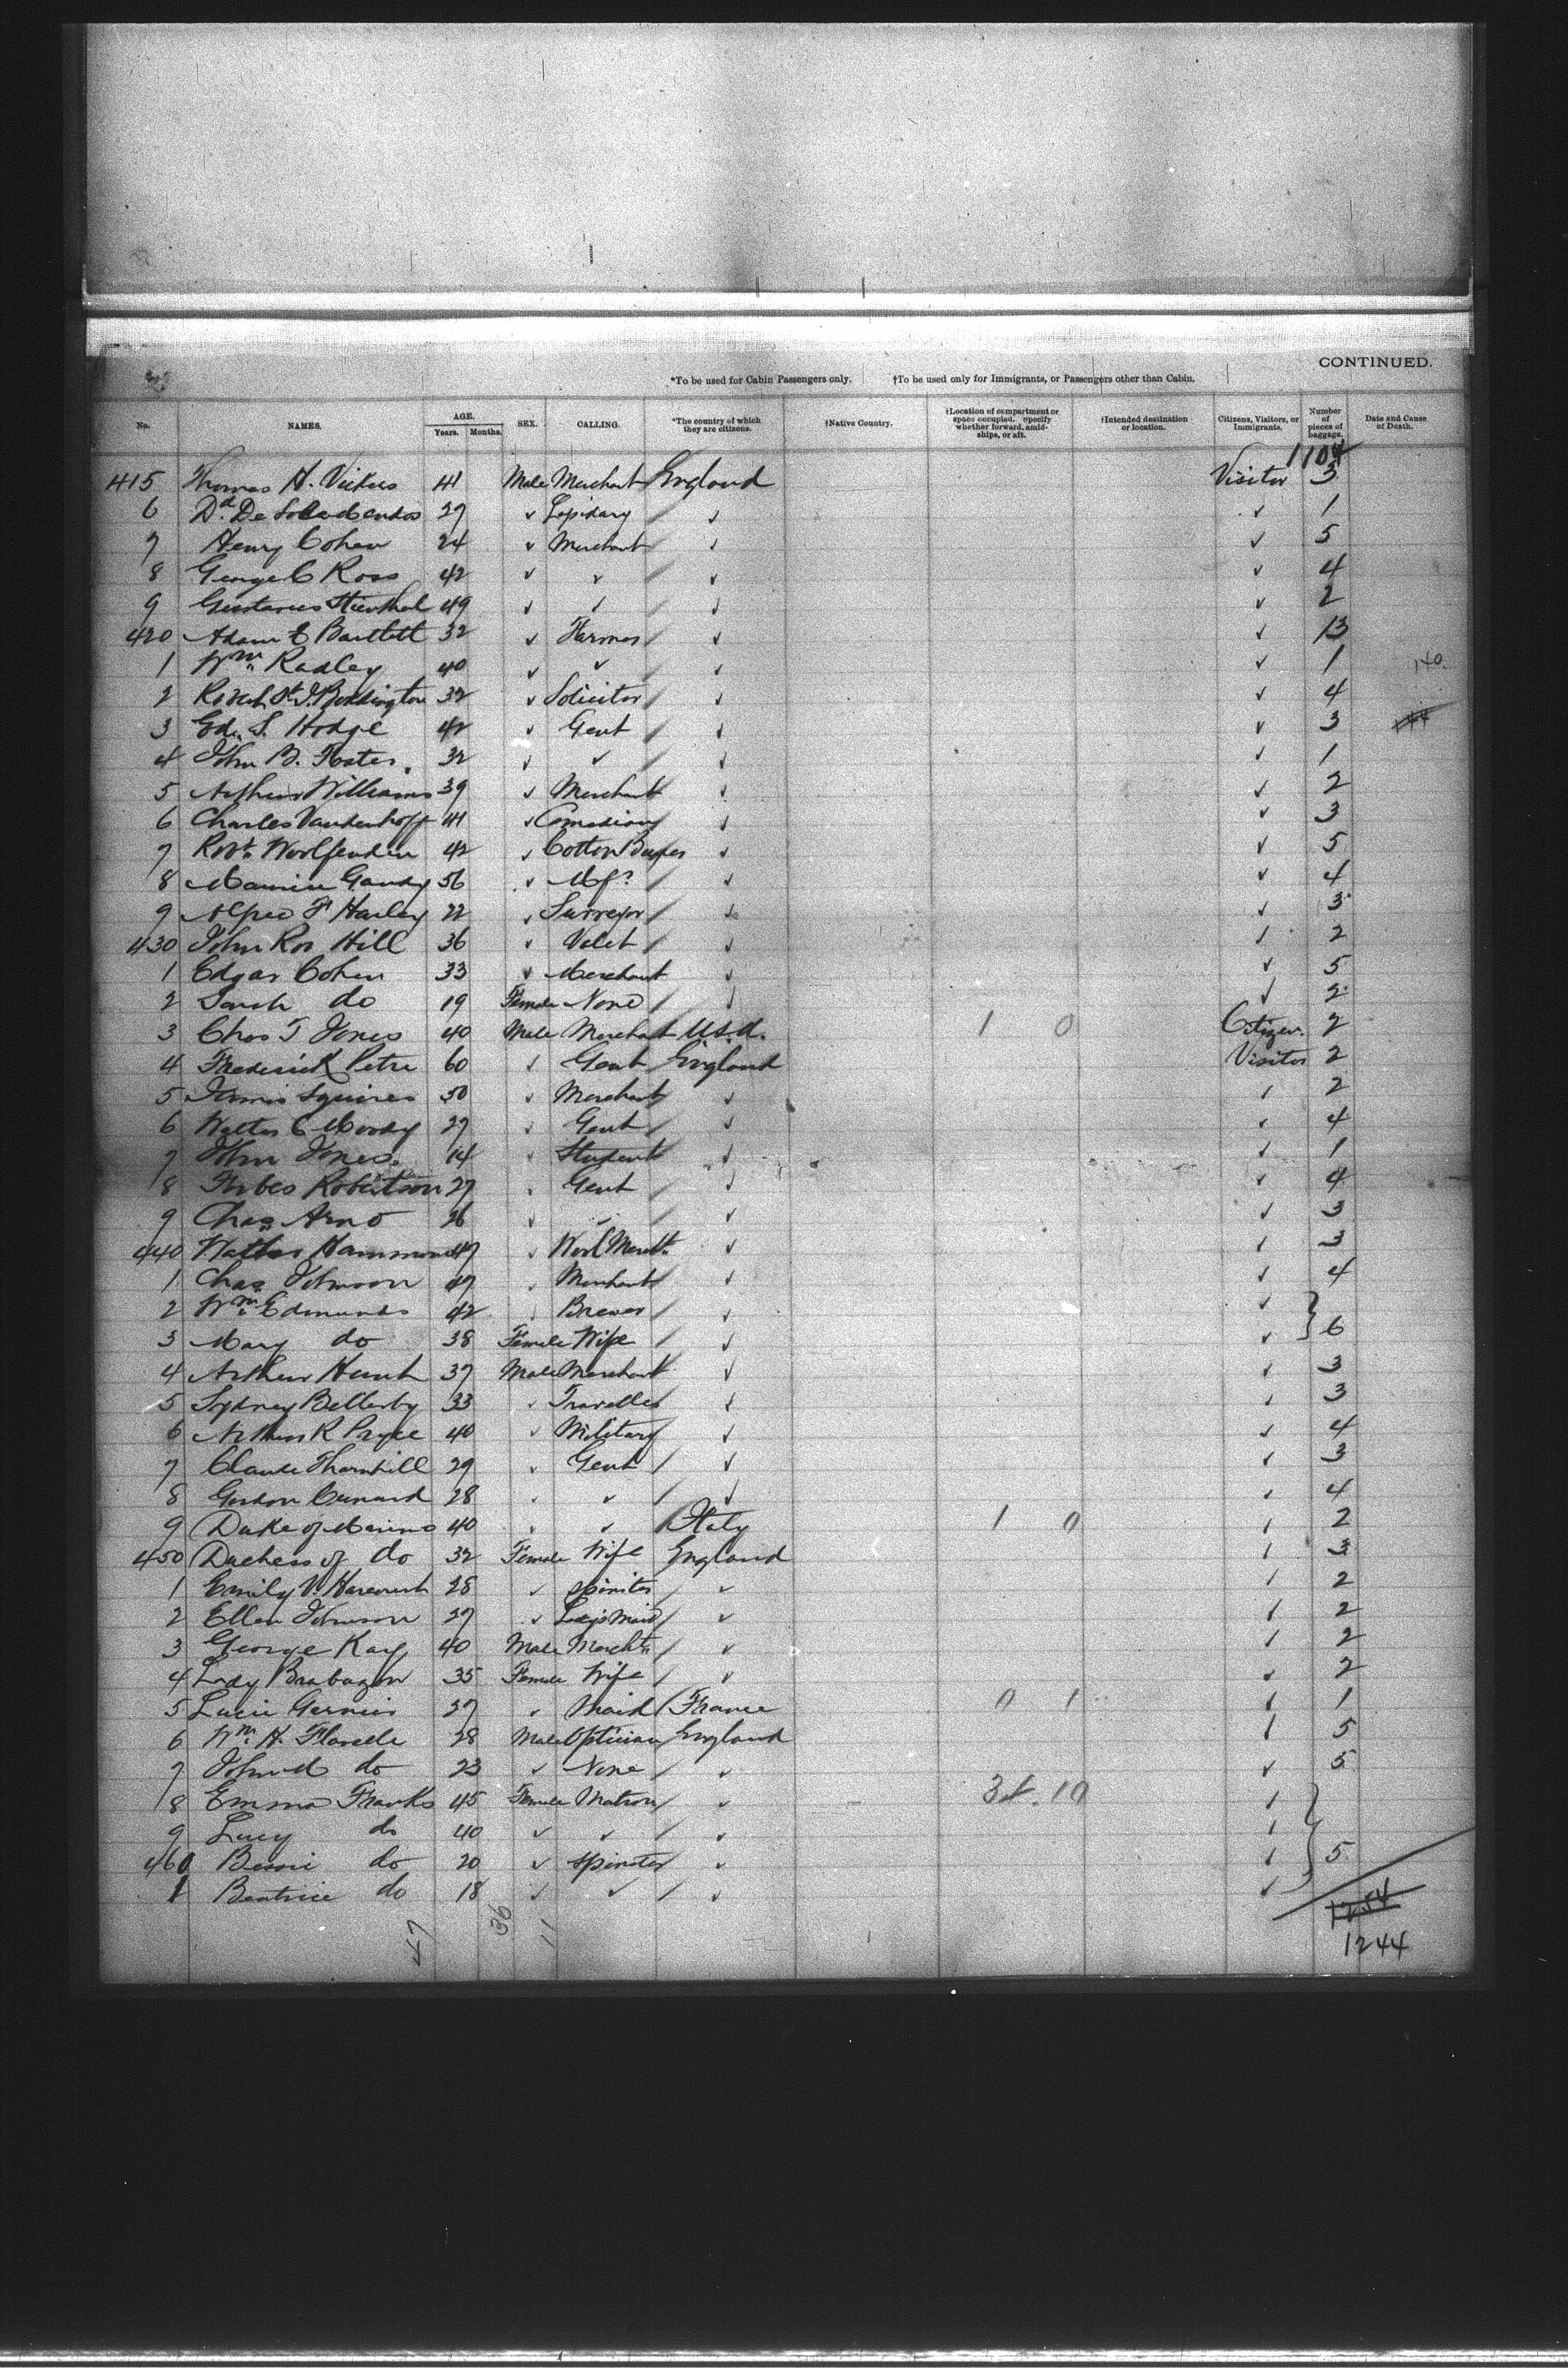 CONTINUED.
*To be used for Cabin Passengers only. †To be used only for Immigrants, or Passengers other than Cabin.
No. NAMES. AGE. Years. Months. SEX. CALLING. *The country of which they are citizens. †Native Country. †Location of compartment or space occupied. Specify whether forward, amidships, or aft. †Intended destination or location. Citizens, Visitors, or Immigrants. Number of pieces of baggage. Date and Cause of Death.
1104
415 Thomas H. Vickers 41 Male Merchant England Visitor 3
6 Dd. De Sola Mendes 27 ✓ Lapidary / ✓ ✓ 1
7 Henry Cohen 24 ✓ Merchant / ✓ ✓ 5
8 George C Ross 42 ✓ ✓ / ✓ ✓ 4
9 Gustavus 49 ✓ ✓ / ✓ ✓ 2
420 Adam E Bartlett 32 ✓ Farmer / ✓ ✓ 13
1 Wm. Radley 40 ✓ ✓ / ✓ ✓ 1 140
2 Robert St J. 32 ✓ Solicitor / ✓ ✓ 4
3 Ed. S. Hodge 42 ✓ Gent / ✓ ✓ 3
4 John B. Foster. 32 ✓ ✓ / ✓ ✓ 1
5 Arthur Williams 39 ✓ Merchant ✓ ✓ 2
6 Charles Vandenhoff 41 ✓ Comedian / ✓ ✓ 3
7 Robt. Woolfenden 42 ✓ Cotton Buyer ✓ ✓ 5
8 Maurice Gandy 56 ✓ Mfr / ✓ ✓ 4
9 Alfred F Harley 22 ✓ Surveyor / ✓ ✓ 3
430 John Ross Hill 36 ✓ Valet / ✓ ✓ 2
1 Edgar Cohen 33 ✓ Merchant ✓ ✓ 5
2 Sarah do 19 Female None / ✓ ✓ 2
3 Chas T Jones 40 Male Merchant U.S.A. 1 0 Citizen. 2
4 Frederick Petre 60 ✓ Gent England Visitor 2
5 Squires 50 ✓ Merchant / ✓ ✓ 2
6 Walter C Moody 27 ✓ Gent / ✓ ✓ 4
7 John Jones. 14 ✓ Student / ✓ ✓ 1
8 Forbes Robertson 27 ✓ Gent / ✓ ✓ 4
9 Chas. Arno 26 ✓ ✓ / ✓ ✓ 3
440 Walter Hammond 47 ✓ Wool Mercht. ✓ ✓ 3
1 Chas. Johnson 47 ✓ Merchant / ✓ ✓ 4
2 Wm. Edmunds 42 ✓ Brewer / ✓ ✓ }
3 Mary do 38 Female Wife / ✓ ✓ } 6
4 Arthur Hunt 37 Male Merchant ✓ ✓ 3
5 Sydney Bellerby 33 ✓ Traveller ✓ ✓ 3
6 Arthur R Pryce 40 ✓ Military ✓ ✓ 4
7 Claude Thornhill 29 ✓ Gent / ✓ ✓ 3
8 Gordon Cunard 28 ✓ ✓ / ✓ ✓ 4
9 Duke of Marino 40 ✓ ✓ / Italy 1 0 ✓ 2
450 Duchess of do 32 Female Wife England ✓ 3
1 Emily V. Harcourt 28 ✓ Spinster / ✓ ✓ 2
2 Ellen Johnson 27 ✓ Lady's Maid / ✓ ✓ 2
3 George Kay 40 Male Mercht. / ✓ ✓ 2
4 Lady Brabazon 35 Female Wife / ✓ ✓ 2
5 Lucie 27 ✓ Maid / France 0 1 ✓ 1
6 Wm. H. Flavelle 28 Male Optician England ✓ 5
7 do 23 ✓ None / ✓ ✓ 5
8 Emma Franks 45 Female Matron / ✓ 34. 10 ✓ }
9 Lucy do 40 ✓ ✓ / ✓ ✓
460 Bessie do 20 ✓ Spinster ✓ ✓ 5
1 Beatrice do 18 ✓ ✓ / ✓ ✓
1254
1244
47 36 11